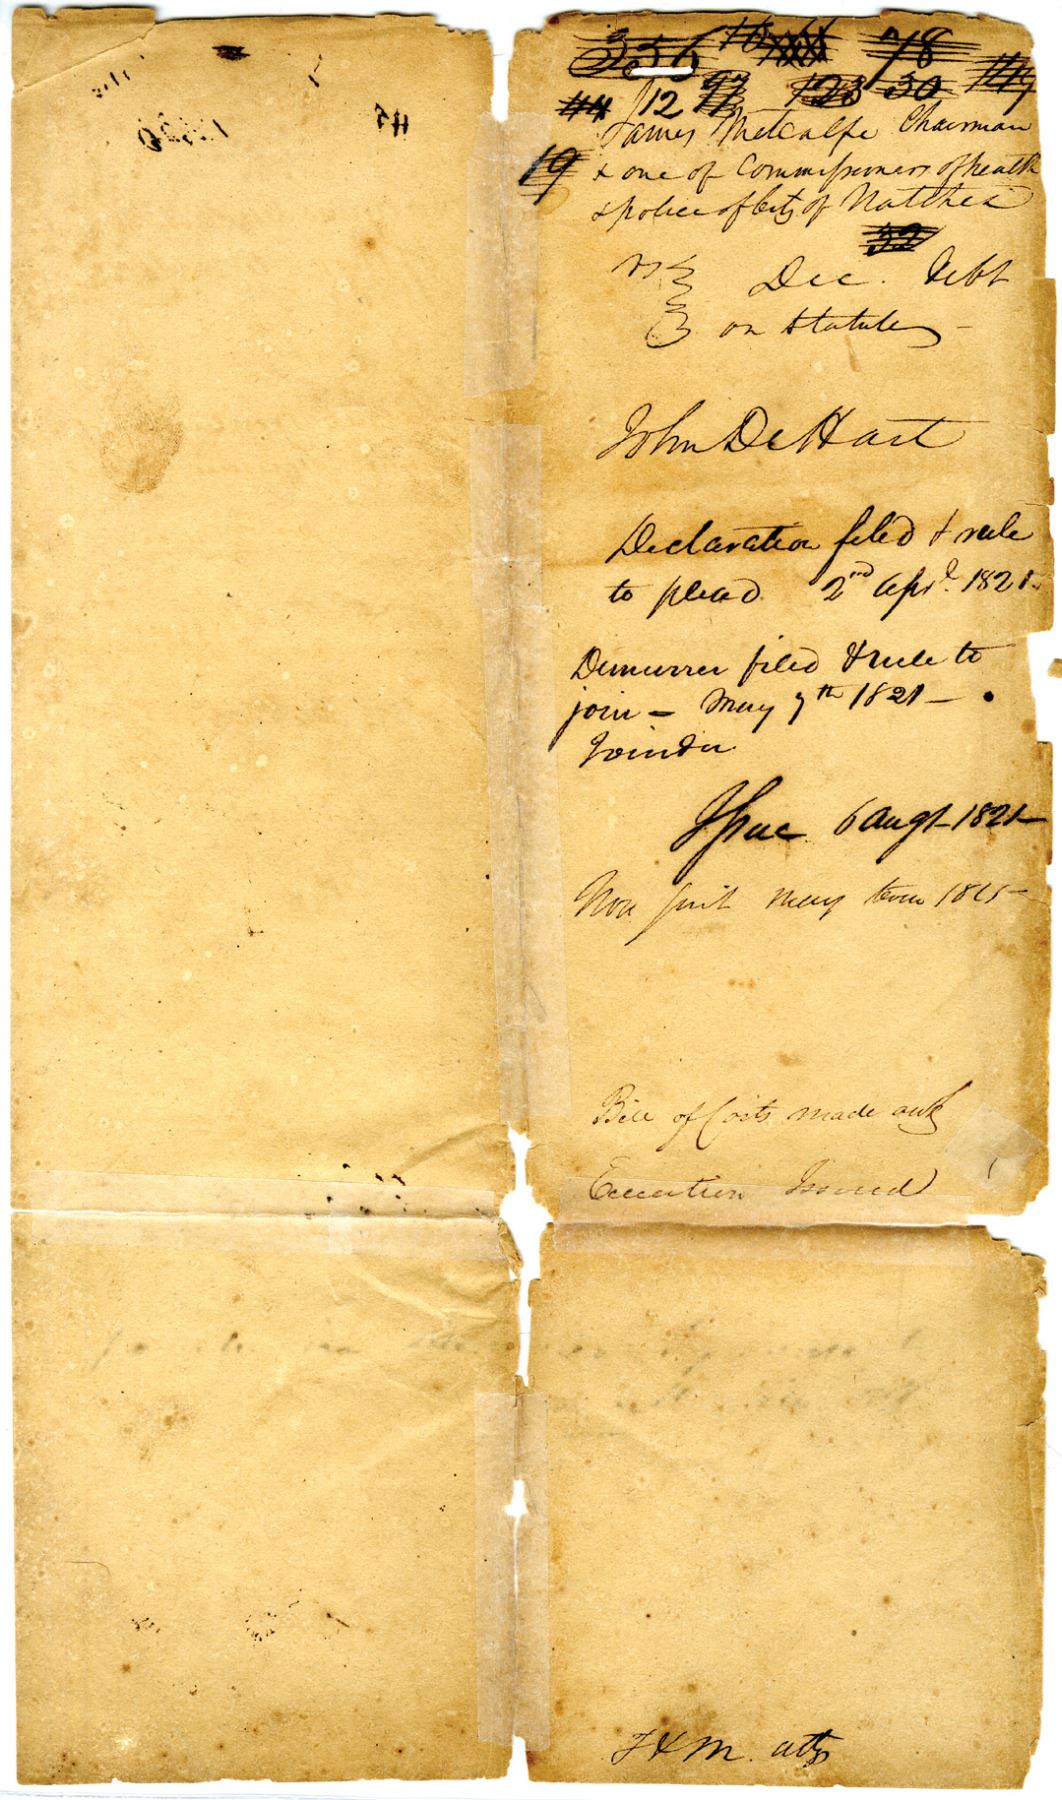 356 16 78
44 12 97 123 30 149
James Metcalfe Chairman
19 & one of Commissioners of health
& police of City of Natchez
32
vs Dec. Debt
on Statute
John DeHart
Declaration filed & rule
to plead 2nd Apr. 1821
Demurrer filed & rule to
join — May 7th 1821 —
Joinder
Issue 6 Augt 1821
Non suit May term
Bill of Costs made out
Execution Issued
T & M. attys